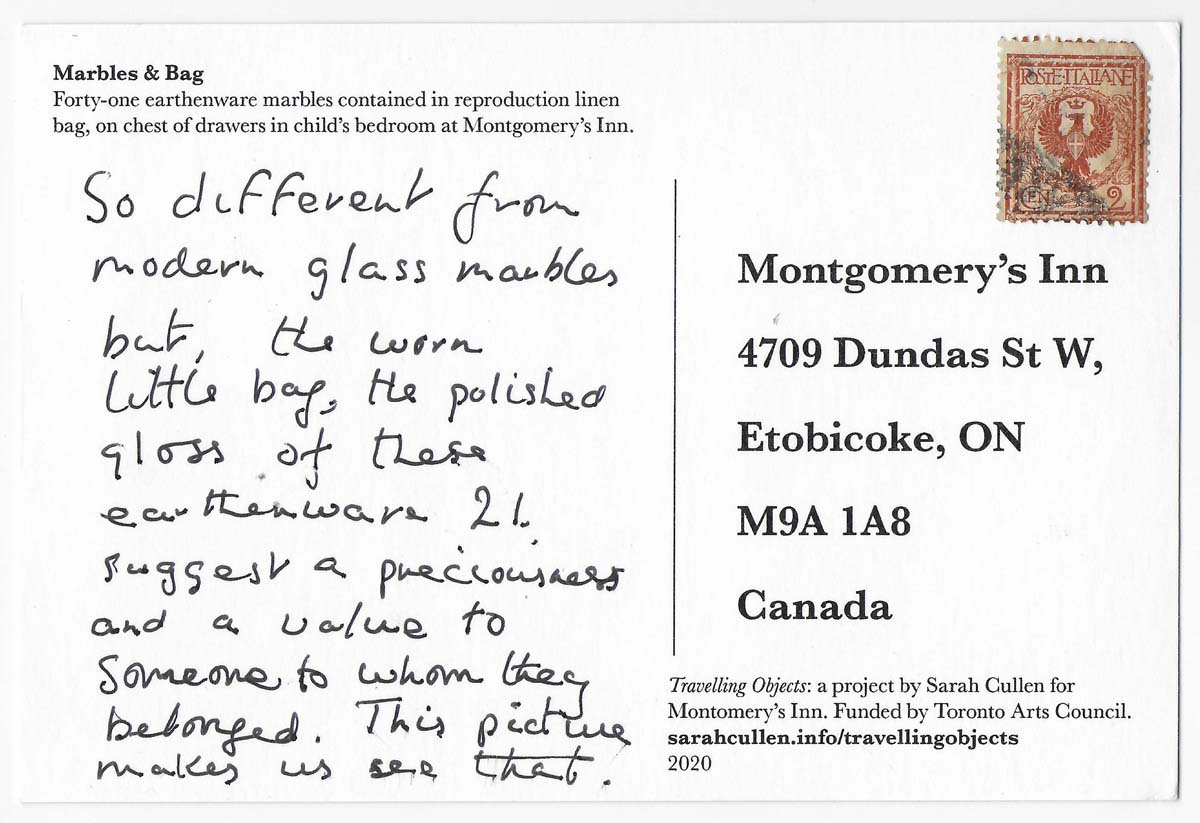 Marbles & Bag
Forty-one earthenware marbles contained in reproduction linen
bag, on chest of drawers in child's bedroom at Montgomery's Inn.
So different from
modern glass marbles
but, the worn
little bag, the polished
gloss of these
earthenware 21.
suggest a preciousness
and a value to
someone to whom they
belonged. This picture
makes us see that.
POSTE·ITALIANE
CEN. 2
Montgomery's Inn
4709 Dundas St W,
Etobicoke, ON
M9A 1A8
Canada
Travelling Objects: a project by Sarah Cullen for
Montomery's Inn. Funded by Toronto Arts Council.
sarahcullen.info/travellingobjects
2020